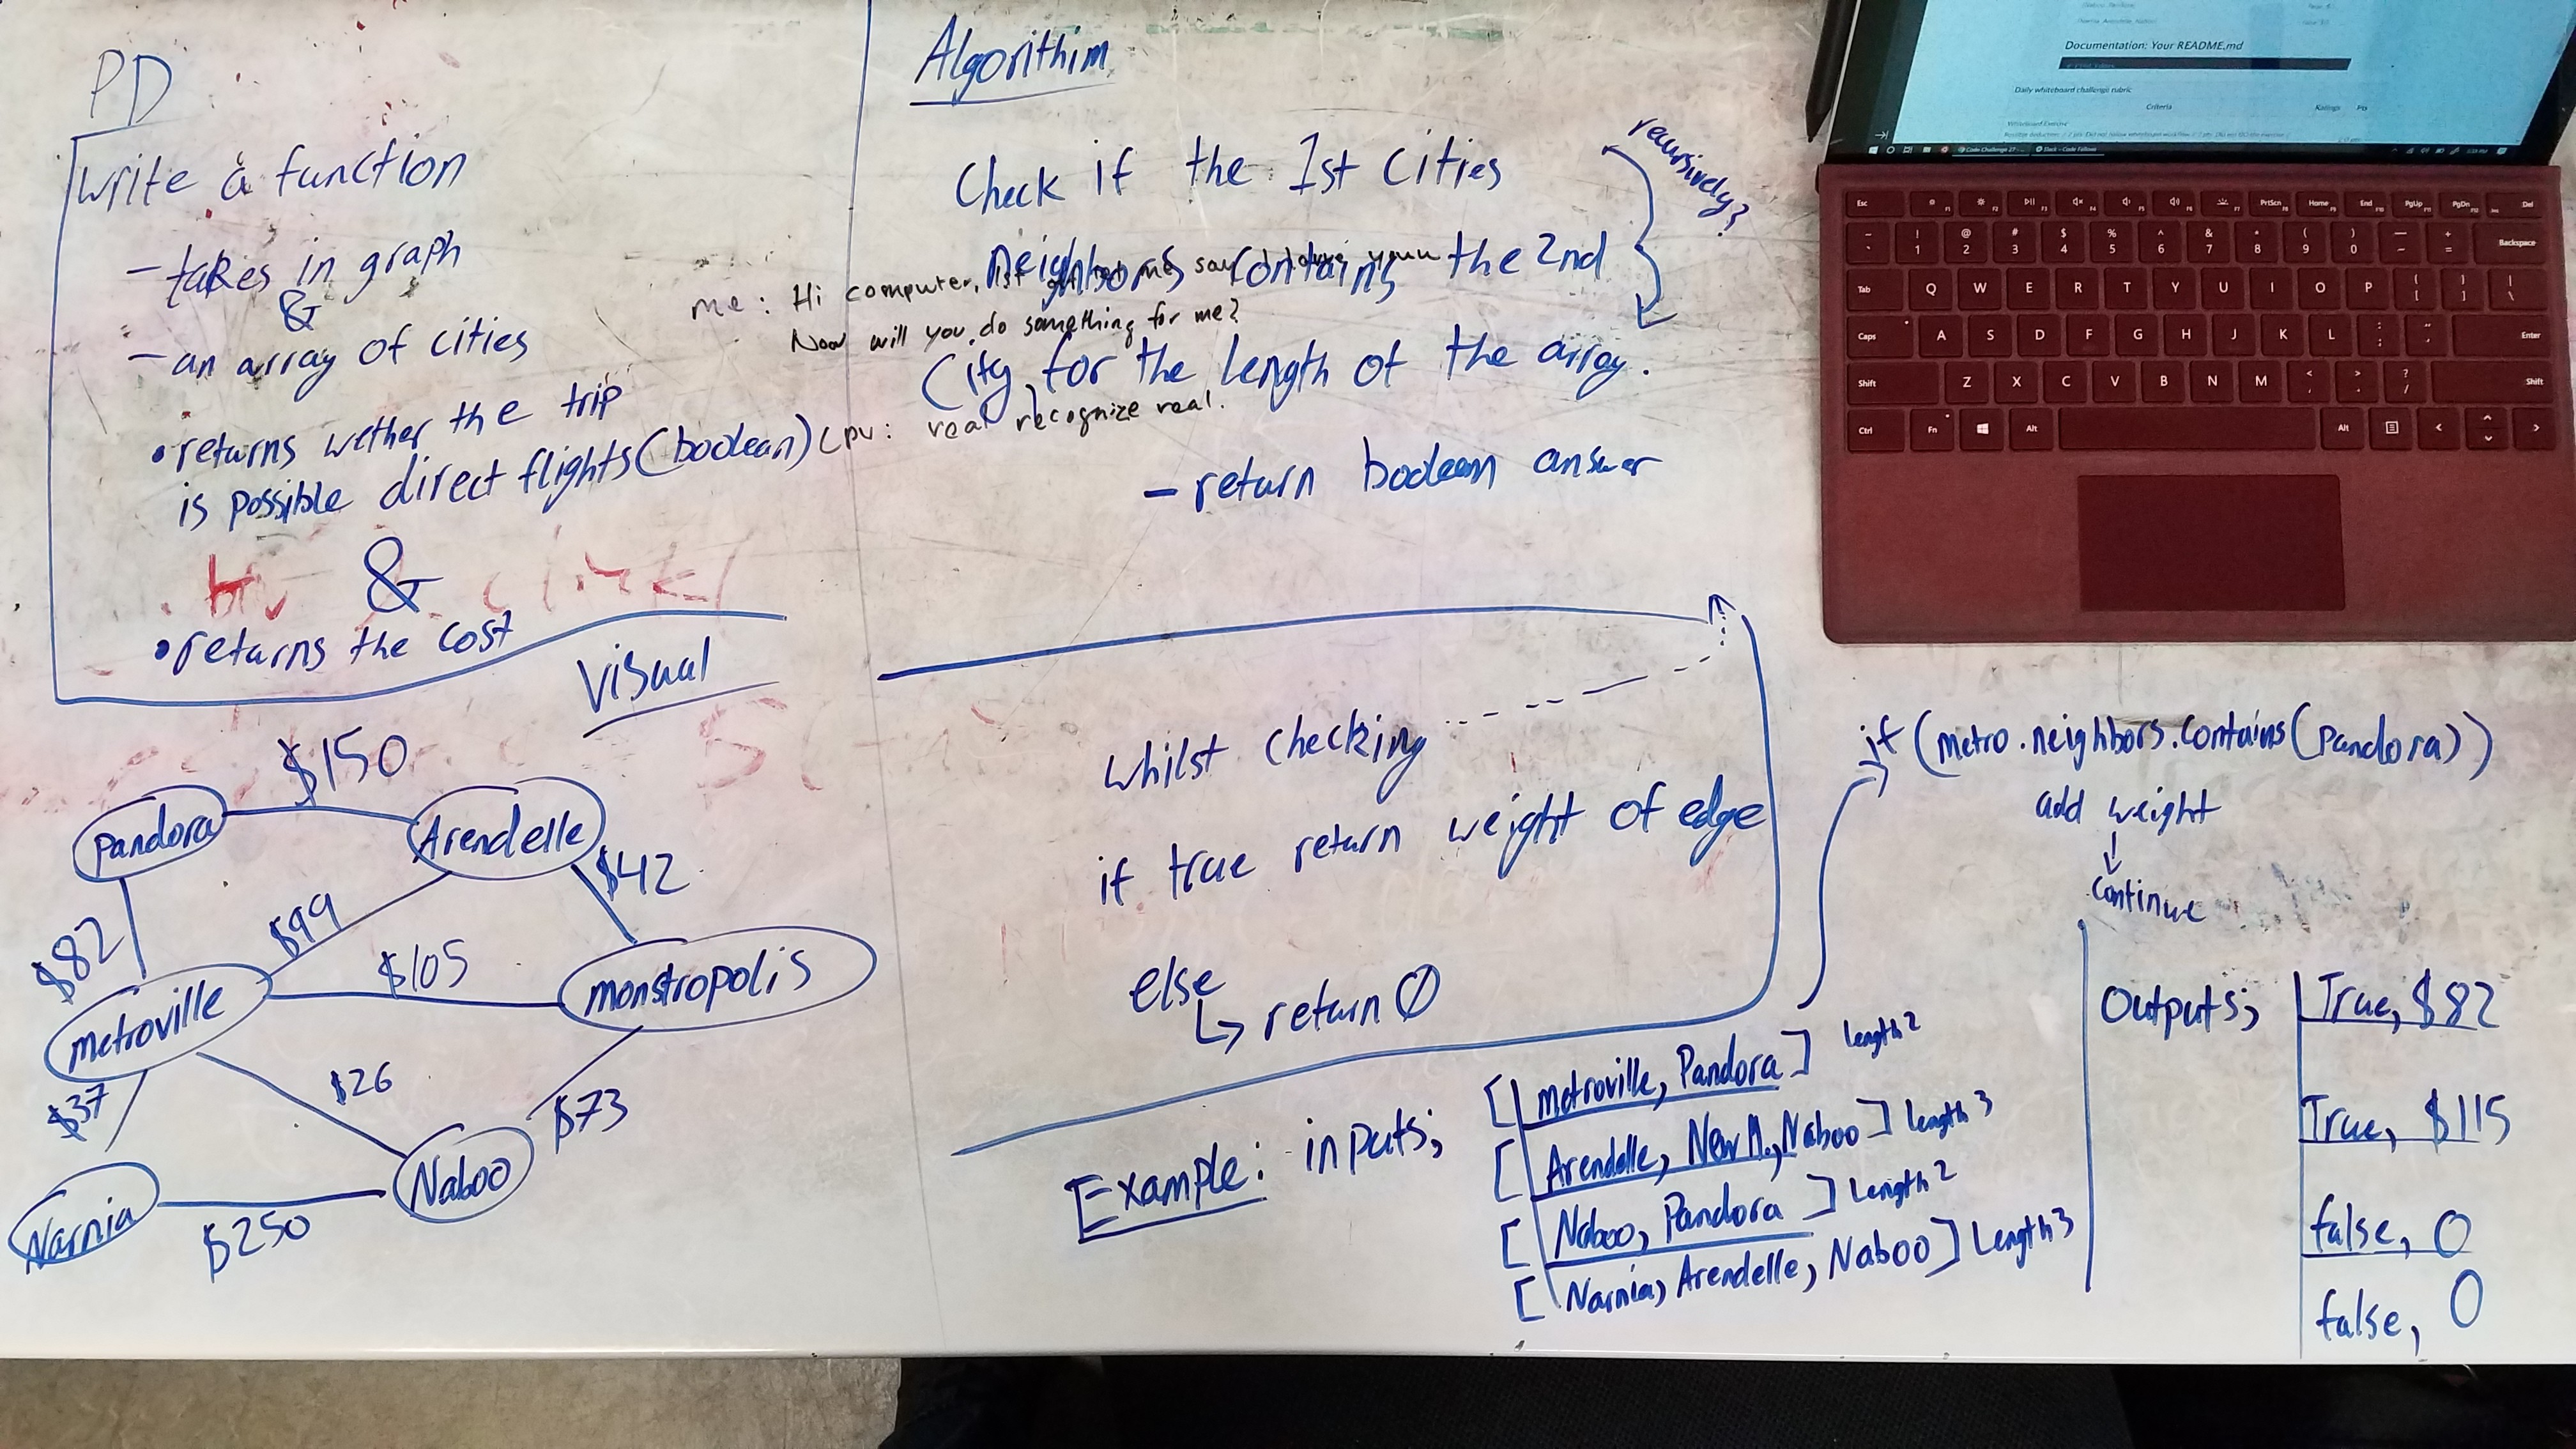 PD
Write a function
- takes in graph
&
- an array of cities
• returns wether the trip
is possible direct flights (boolean)
&
• returns the cost
Algorithim
Check if the 1st cities
neighbors contains the 2nd
City, for the length of the array.
recursively?
- return boolean answer
me: Hi computer,
Now will you do something for me?
cpu: real recognize real.
Visual
$150
Pandora
Arendelle
$42
$82
$99
$105
metroville
monstropolis
$37
$26
$73
Naboo
Narnia
$250
whilst checking
if true return weight of edge
else
↳ return 0
if (metro.neighbors.contains(pandora))
add weight
↓
continue
Example: inputs;
[metroville, Pandora] length 2
[Arendelle, New M., Naboo] length 3
[Naboo, Pandora] Length 2
[Narnia, Arendelle, Naboo] Length 3
Outputs;
True, $82
True, $115
false, 0
false, 0
Documentation: Your README.md
Daily whiteboard challenge rubric
Criteria
Ratings
Pts
Esc
F1
F2
F3
F4
F5
F6
F7
PrtScn
F8
Home
F9
End
F10
PgUp
F11
PgDn
F12
Ins
Del
~ ` ! 1 @ 2 # 3 $ 4 % 5 ^ 6 & 7 * 8 ( 9 ) 0 — - + = Backspace
Tab Q W E R T Y U I O P { [ } ] | \
Caps A S D F G H J K L : ; " ' Enter
Shift Z X C V B N M < , > . ? / Shift
Ctrl Fn Alt Alt < >